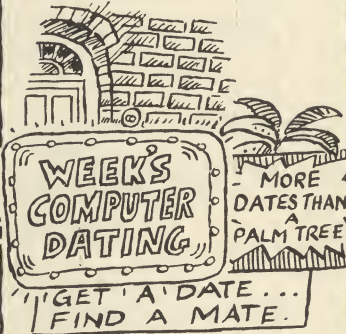 WEEK'S
COMPUTER
DATING
MORE
DATES THAN
A
PALM TREE
GET A DATE...
FIND A MATE.